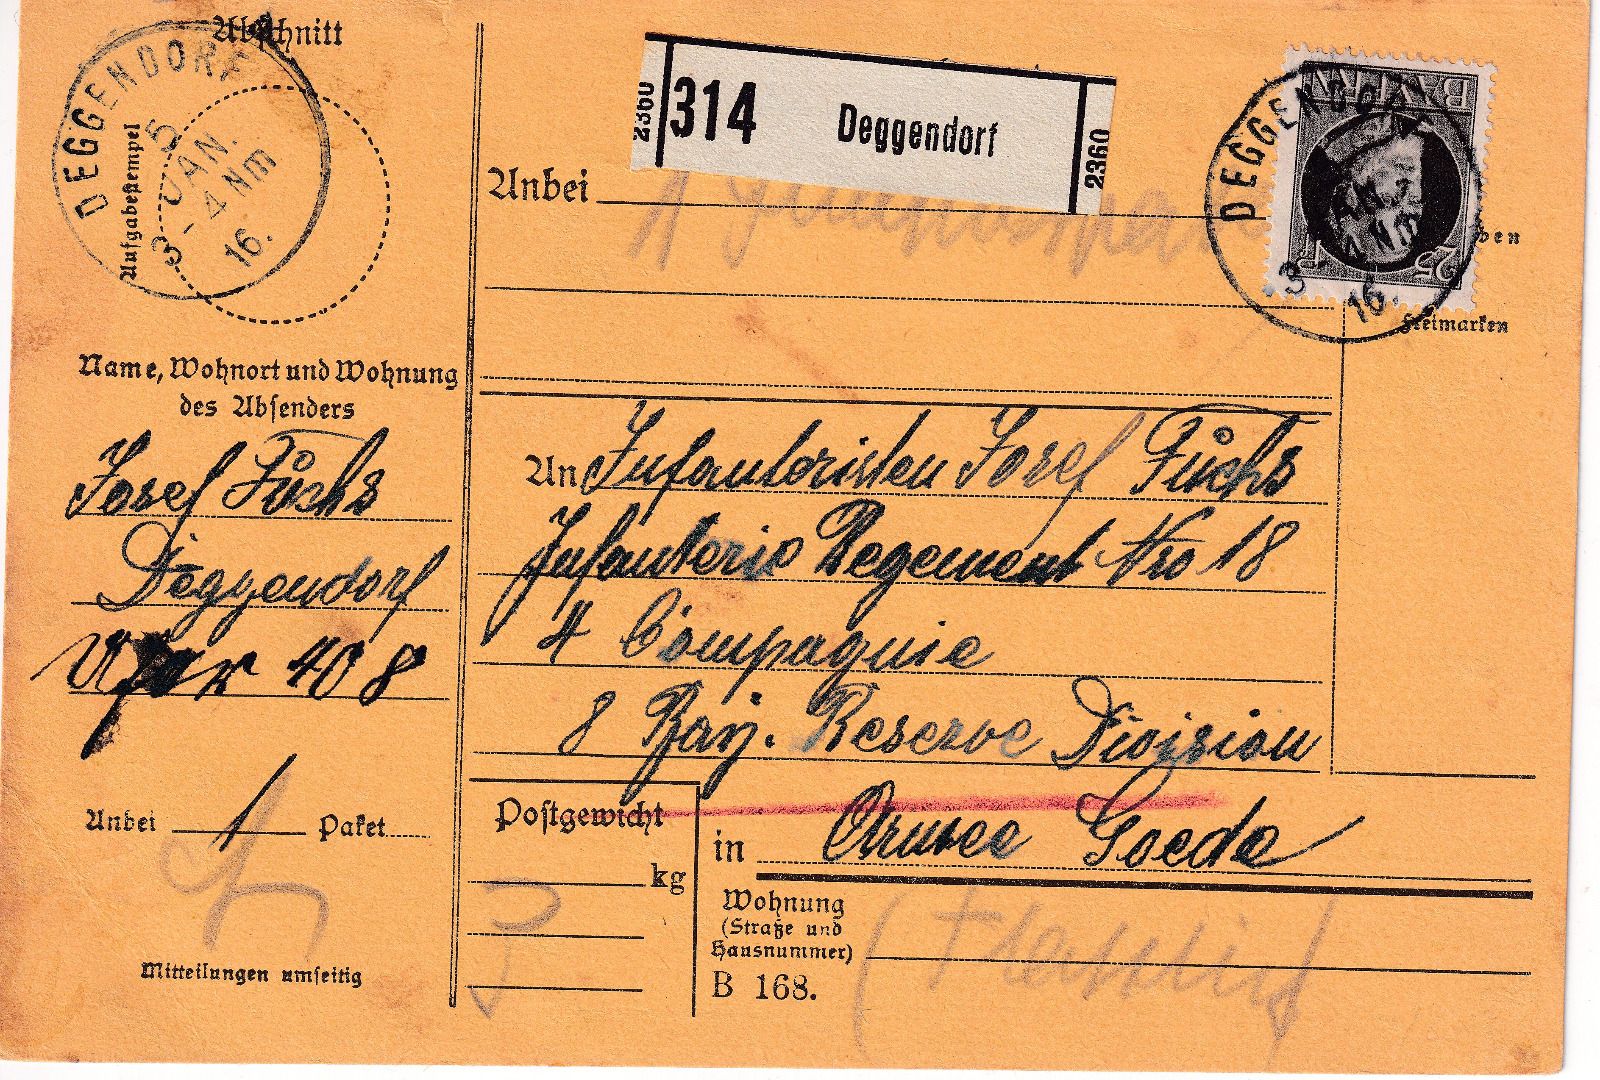 Abschnitt
DEGGENDORF
5 JAN.
3-4 Nm
16.
Aufgabestempel
Name, Wohnort und Wohnung
des Absenders
Josef Fuchs
Deggendorf
408
Anbei 1 Paket
Mitteilungen umseitig
2360
314 Deggendorf
2360
Anbei
BAYERN
25 Pf
DEGGENDORF
3-4 Nm
16.
Freimarken
An Infanteristen Josef Fuchs
Infanterie Regement Nro 18
4 Compagnie
8 Bay. Reserve Division
Postgewicht
kg
in Armee Goede
Wohnung
(Straße und
Hausnummer)
B 168.